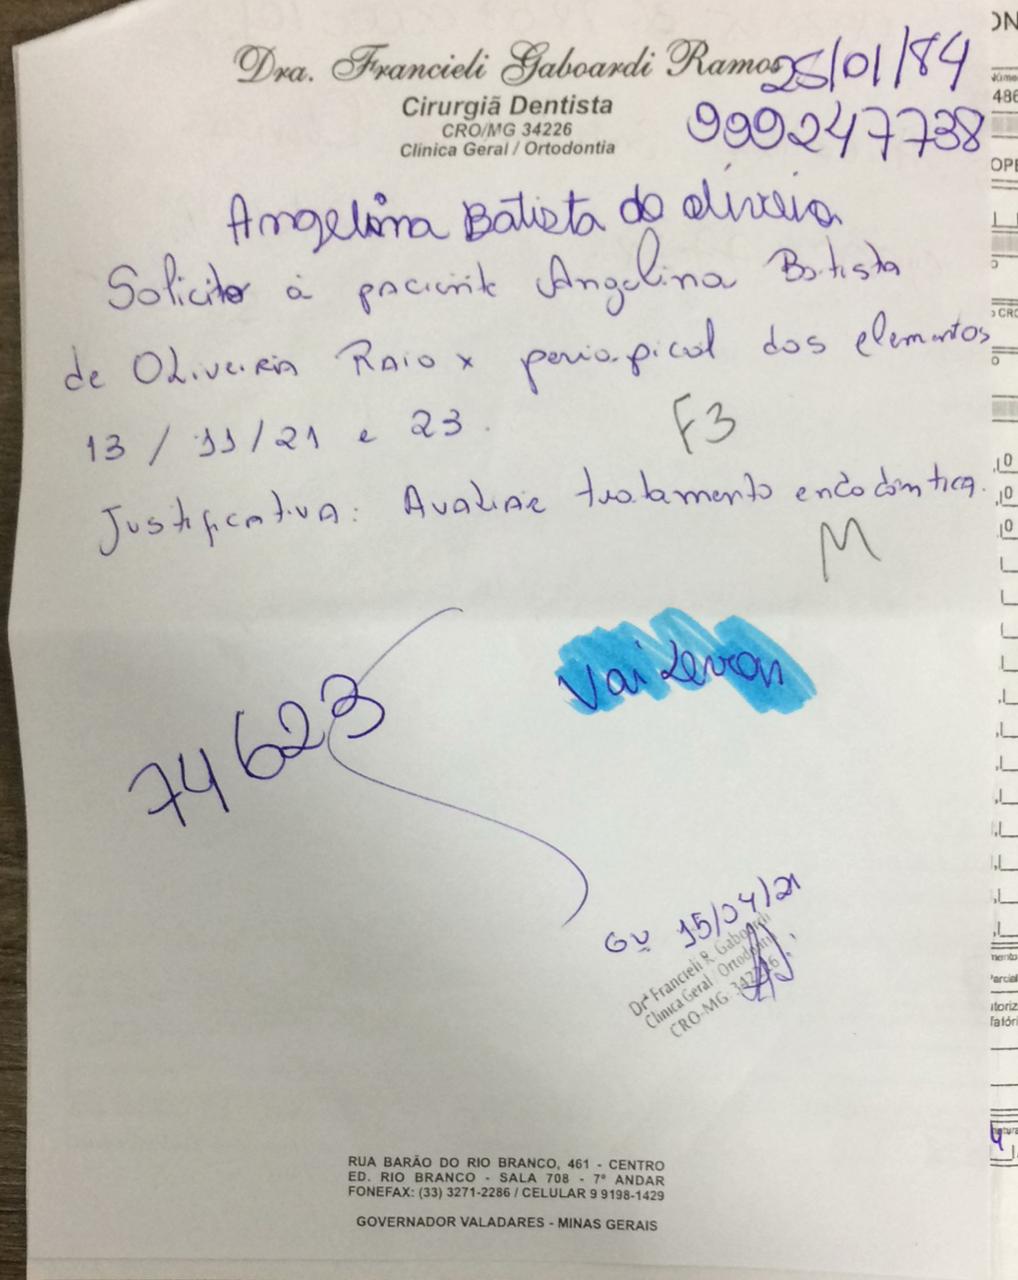 Dra. Francieli Gaboardi Ramos
25/01/84
Cirurgiã Dentista
CRO/MG 34226
999247738
Clínica Geral / Ortodontia
Angelina Batista de oliveira
Solicito à paciente Angelina Batista
de Oliveira Raio x periapical dos elementos
13 / 11 / 21 e 23.
F3
Justificativa: Avaliar tratamento endodôntico.
M
Vai Levar
74623
Gv 15/04/21
Drª Francieli R. Gaboardi
Clínica Geral / Ortodontia
CRO-MG 34226
RUA BARÃO DO RIO BRANCO, 461 - CENTRO
ED. RIO BRANCO - SALA 708 - 7º ANDAR
FONEFAX: (33) 3271-2286 / CELULAR 9 9198-1429
GOVERNADOR VALADARES - MINAS GERAIS